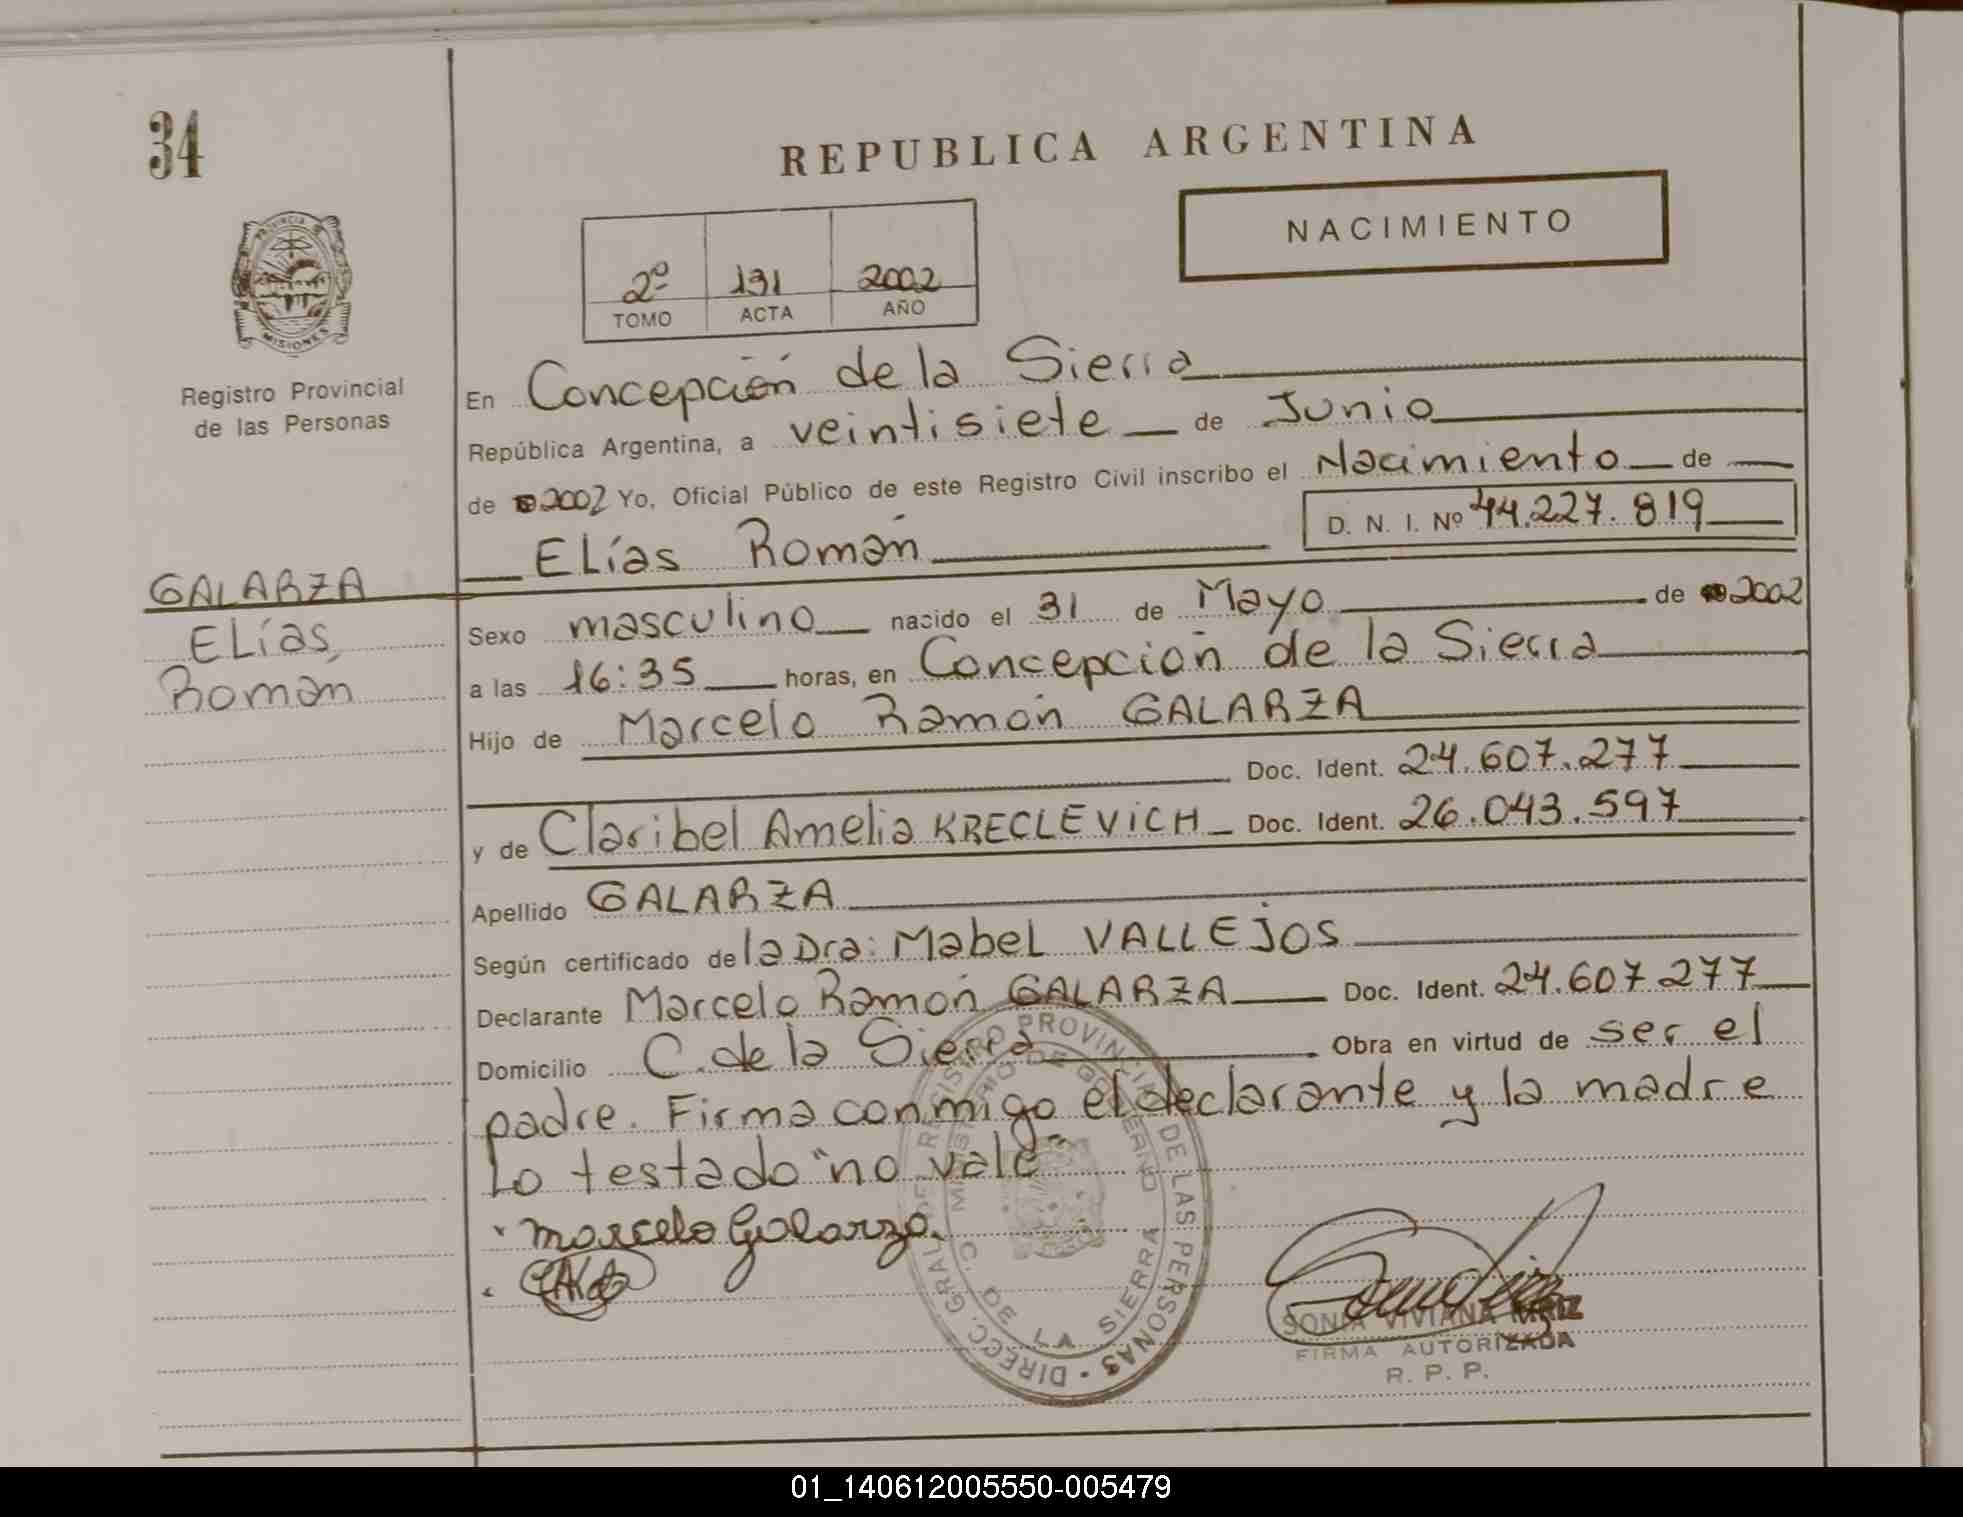 34
REPUBLICA ARGENTINA
NACIMIENTO
2º 131 2002
TOMO ACTA AÑO
PROVINCIA DE
MISIONES
Registro Provincial
de las Personas
En Concepción de la Sierra
República Argentina, a veintisiete de Junio
de 2002 Yo, Oficial Público de este Registro Civil inscribo el Nacimiento de
D. N. I. Nº 44.227.819
Elías Román
GALARZA
Elías
Román
Sexo masculino nacido el 31 de Mayo de 2002
a las 16:35 horas, en Concepción de la Sierra
Hijo de Marcelo Ramón GALARZA
Doc. Ident. 24.607.277
y de Claribel Amelia KRECLEVICH Doc. Ident. 26.043.597
Apellido GALARZA
Según certificado de la Dra: Mabel VALLEJOS
Declarante Marcelo Ramón GALARZA Doc. Ident. 24.607.277
Domicilio C. de la Sierra Obra en virtud de ser el
padre. Firma conmigo el declarante y la madre
Lo testado "no vale"
Marcelo Galarza.
DIREC. GRAL. DEL REGISTRO PROVINCIAL DE LAS PERSONAS
MINISTERIO DE GOBIERNO
C. DE LA SIERRA
SONIA VIVIANA
FIRMA AUTORIZADA
R. P. P.
01_140612005550-005479